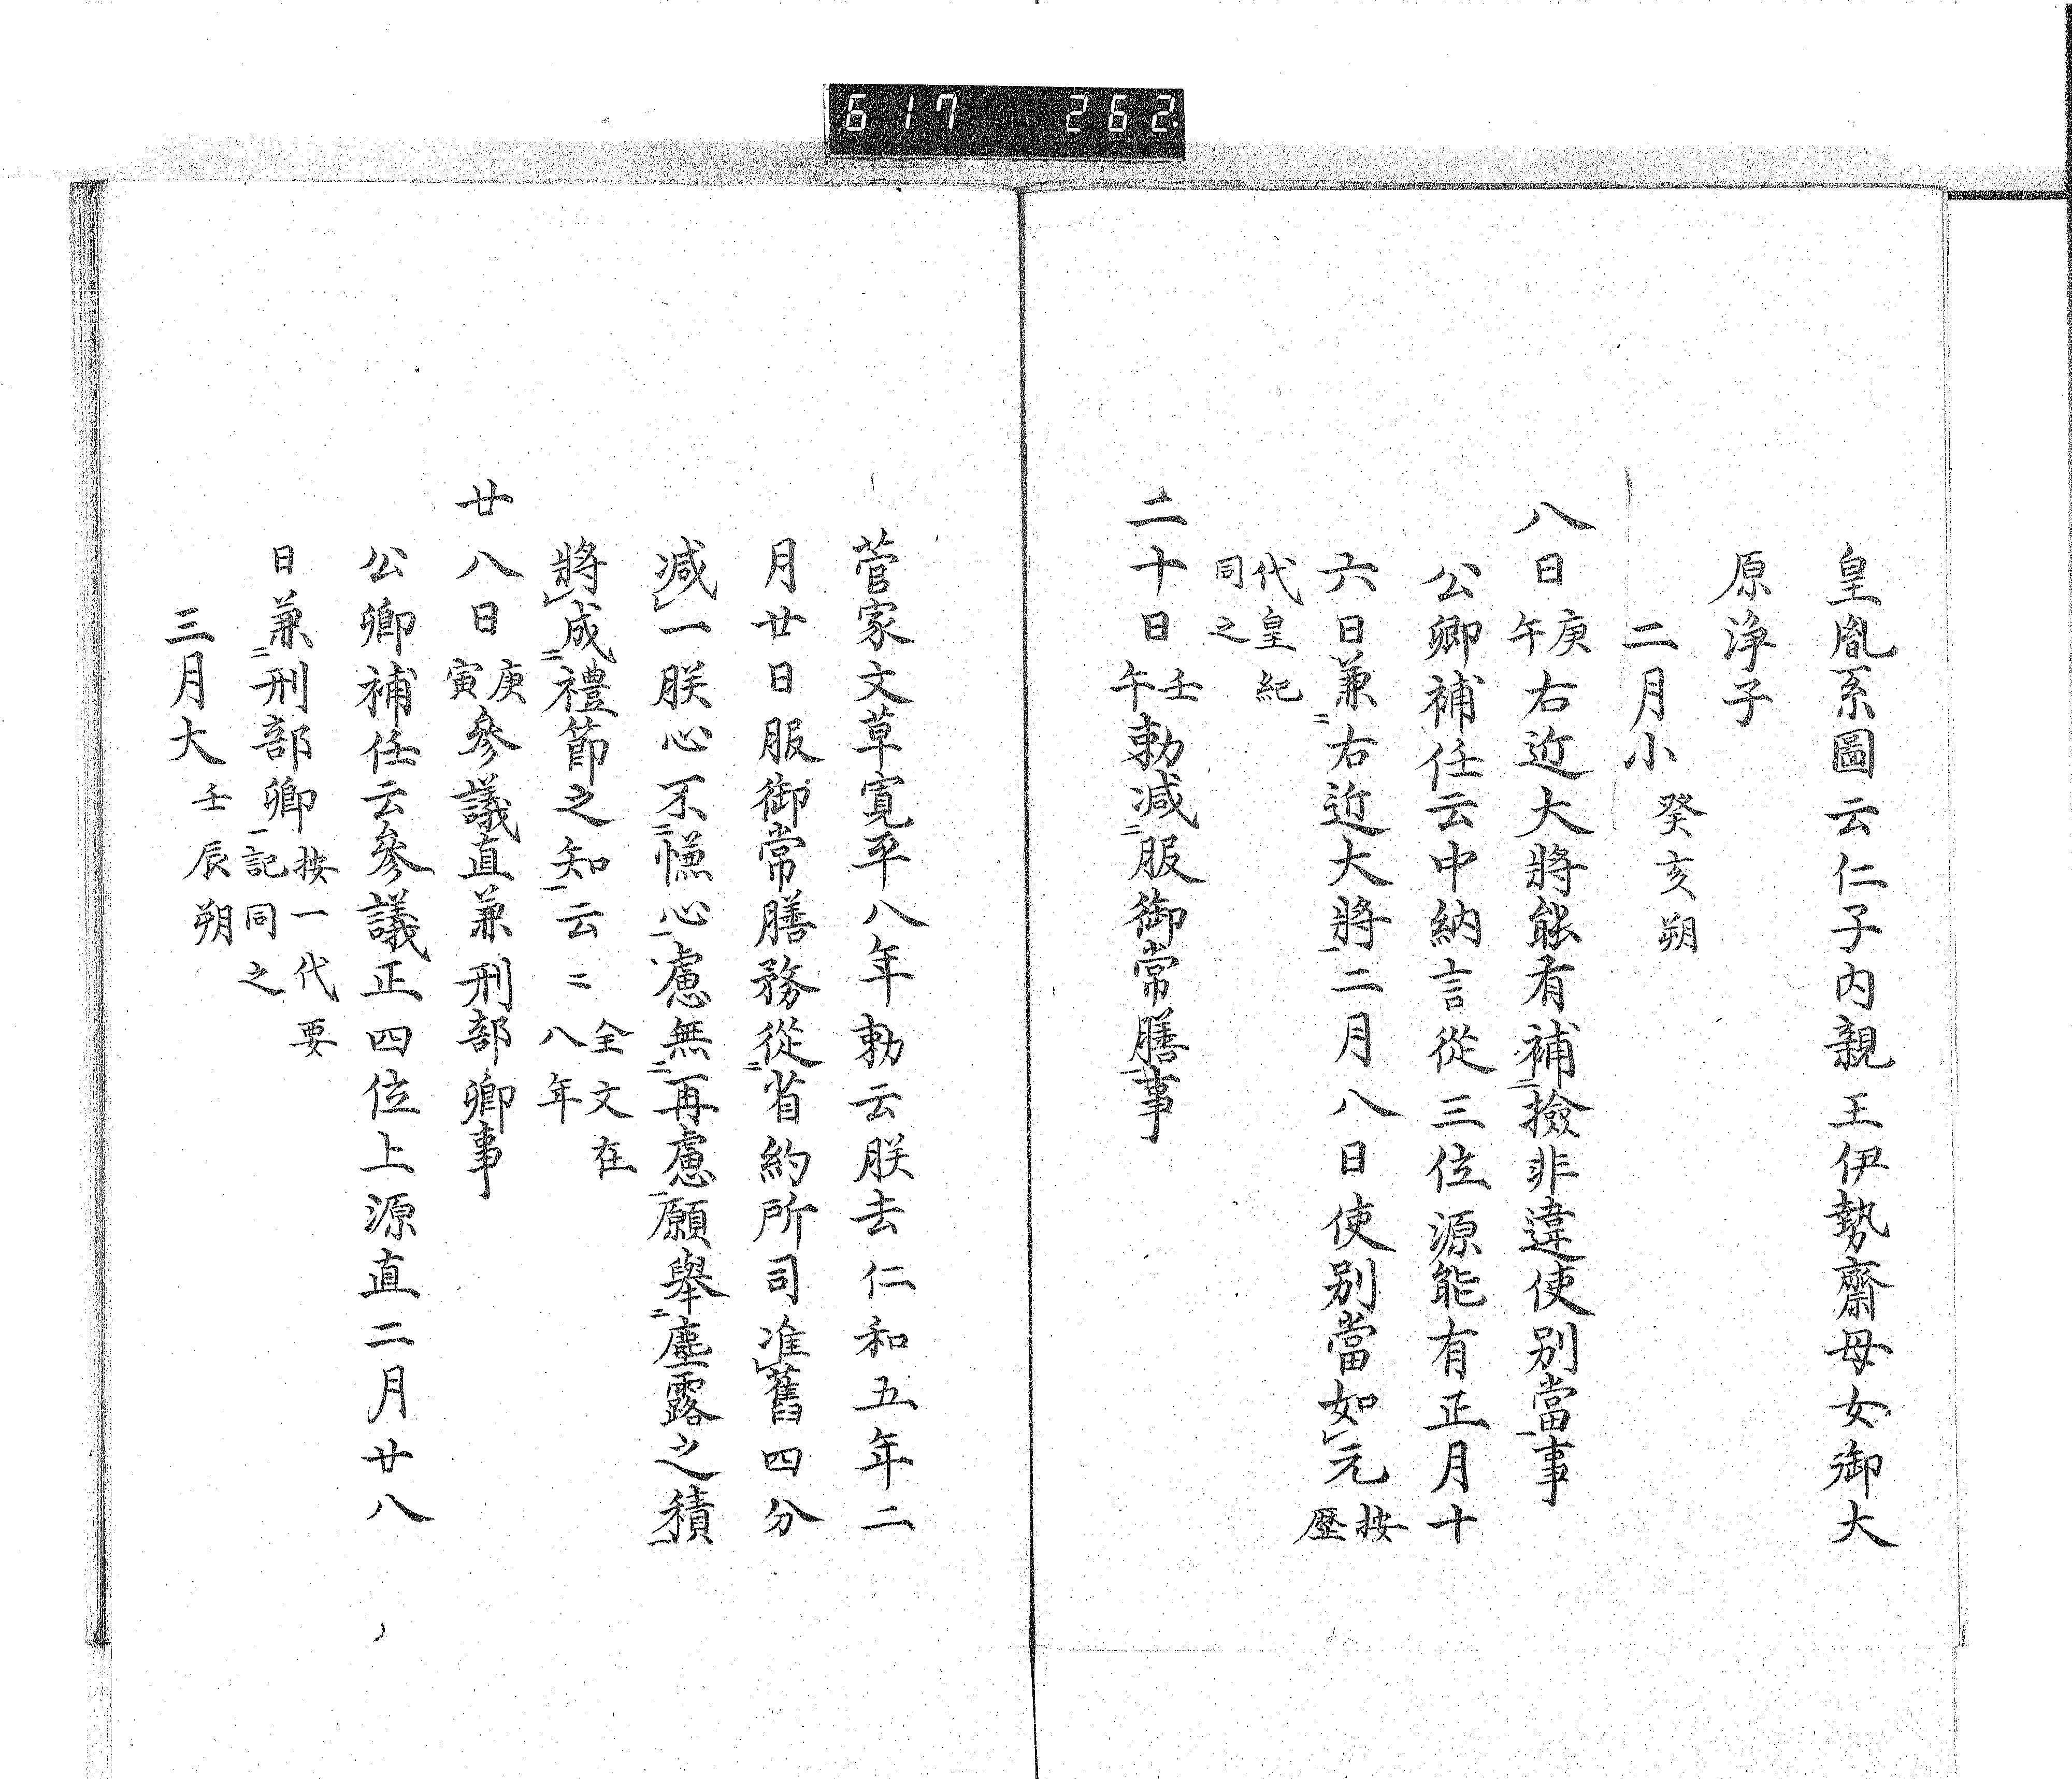 617 262
皇胤系圖云仁子内親王伊勢齋母女御大
原浄子
二月小癸亥朔
八日庚午右近大將能有補二撿非違使別當一事
公卿補任云中納言從三位源能有正月十
六日兼二右近大將一二月八日使別當如レ元按歷
代皇紀同之
二十日壬午勅減二服御常膳一事
菅家文草寛平八年勅云朕去仁和五年二
月廿日服御常膳務從二省約所司准レ舊四分
減レ一朕心不二慊心一慮無二再慮一願擧二塵露之積一
將レ成二禮節之知一云〻全文在八年
廿八日庚寅參議直兼刑部卿事
公卿補任云參議正四位上源直二月廿八
日兼二刑部卿一按一代要記同之
三月大壬辰朔